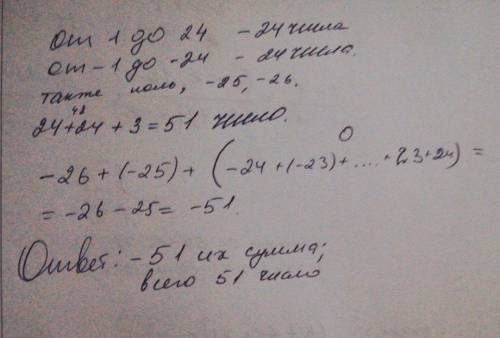 От 1 до 24 - 24 числа
от -1 до -24 - 24 числа.
также ноль, -25, -26.
48
24+24+3=51 число.
0
-26+(-25)+(-24+(-23)+....+23+24)=
= -26-25= -51.
Ответ: -51 их сумма;
всего 51 число